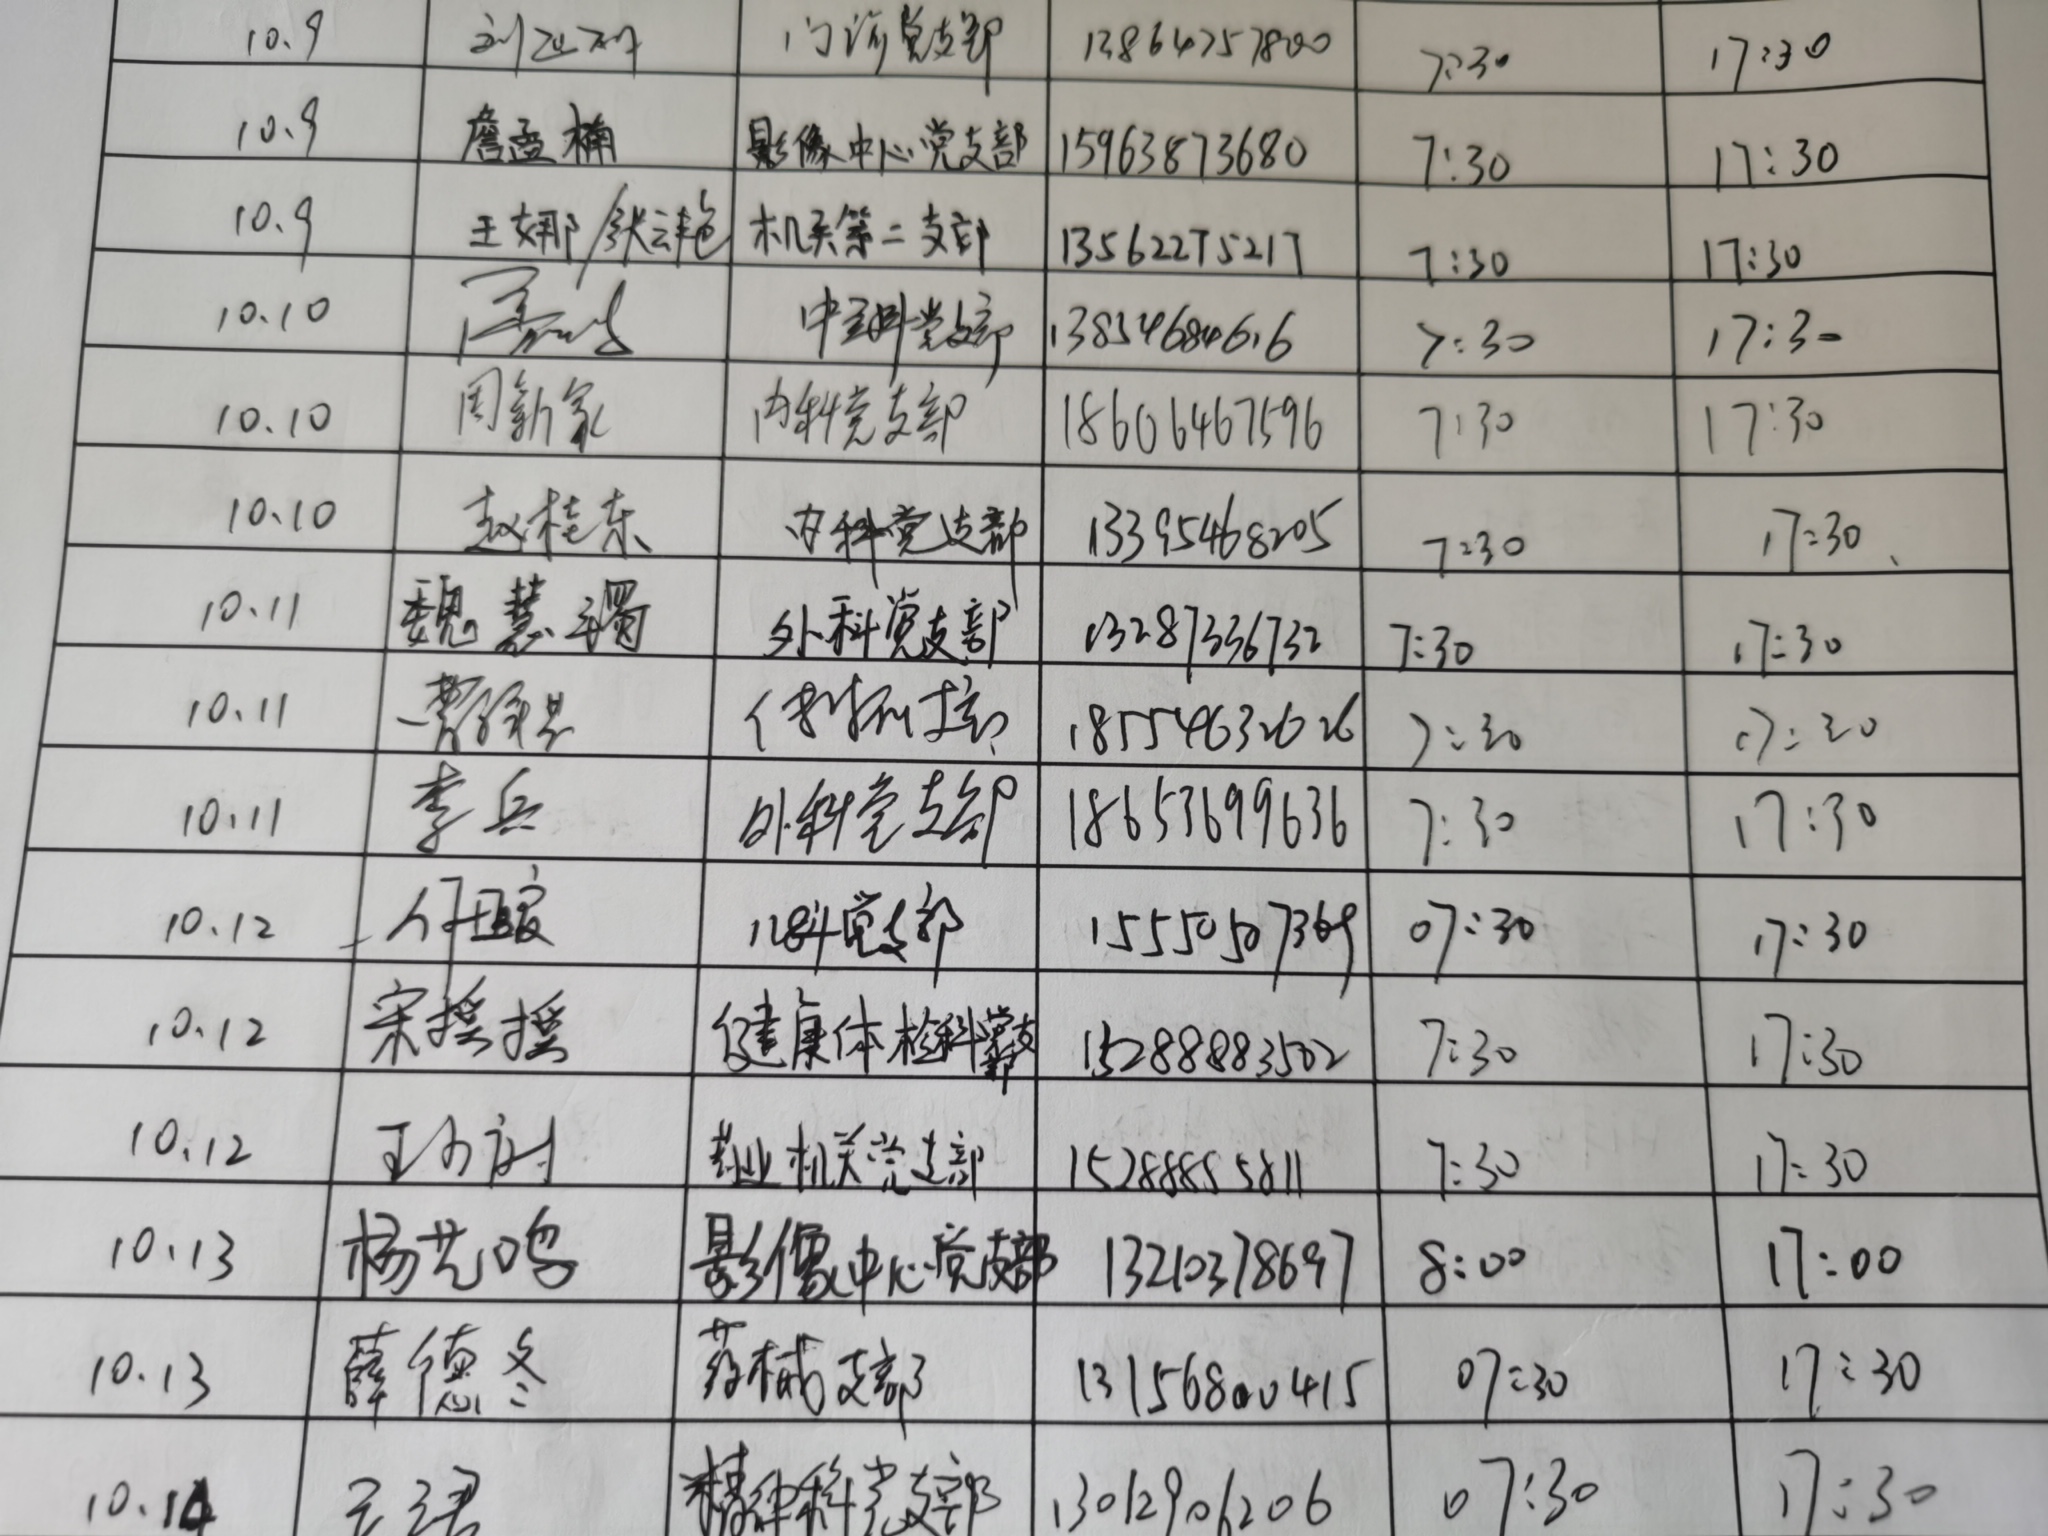 10.9 门诊党支部 13864757800 7:30 17:30
10.9 詹孟楠 影像中心党支部 15963873680 7:30 17:30
10.9 王娜/张云艳 机关第二支部 13562275217 7:30 17:30
10.10 党支部 13854684616 7:30 17:30
10.10 周新家 内科党支部 18606467596 7:30 17:30
10.10 赵桂东 内科党支部 13395468205 7:30 17:30
10.11 魏慧 外科党支部 13287336732 7:30 17:30
10.11 18554632626 7:30 17:30
10.11 李兵 外科党支部 18653699636 7:30 17:30
10.12 儿科党支部 15550507369 07:30 17:30
10.12 宋摇摇 健康体检科党支部 15288883502 7:30 17:30
10.12 王 机关党支部 15288885811 7:30 17:30
10.13 杨艺鸣 影像中心党支部 13210378697 8:00 17:00
10.13 薛德冬 药械支部 13156800415 07:30 17:30
10.14 王 精神科党支部 13012906206 07:30 17:30